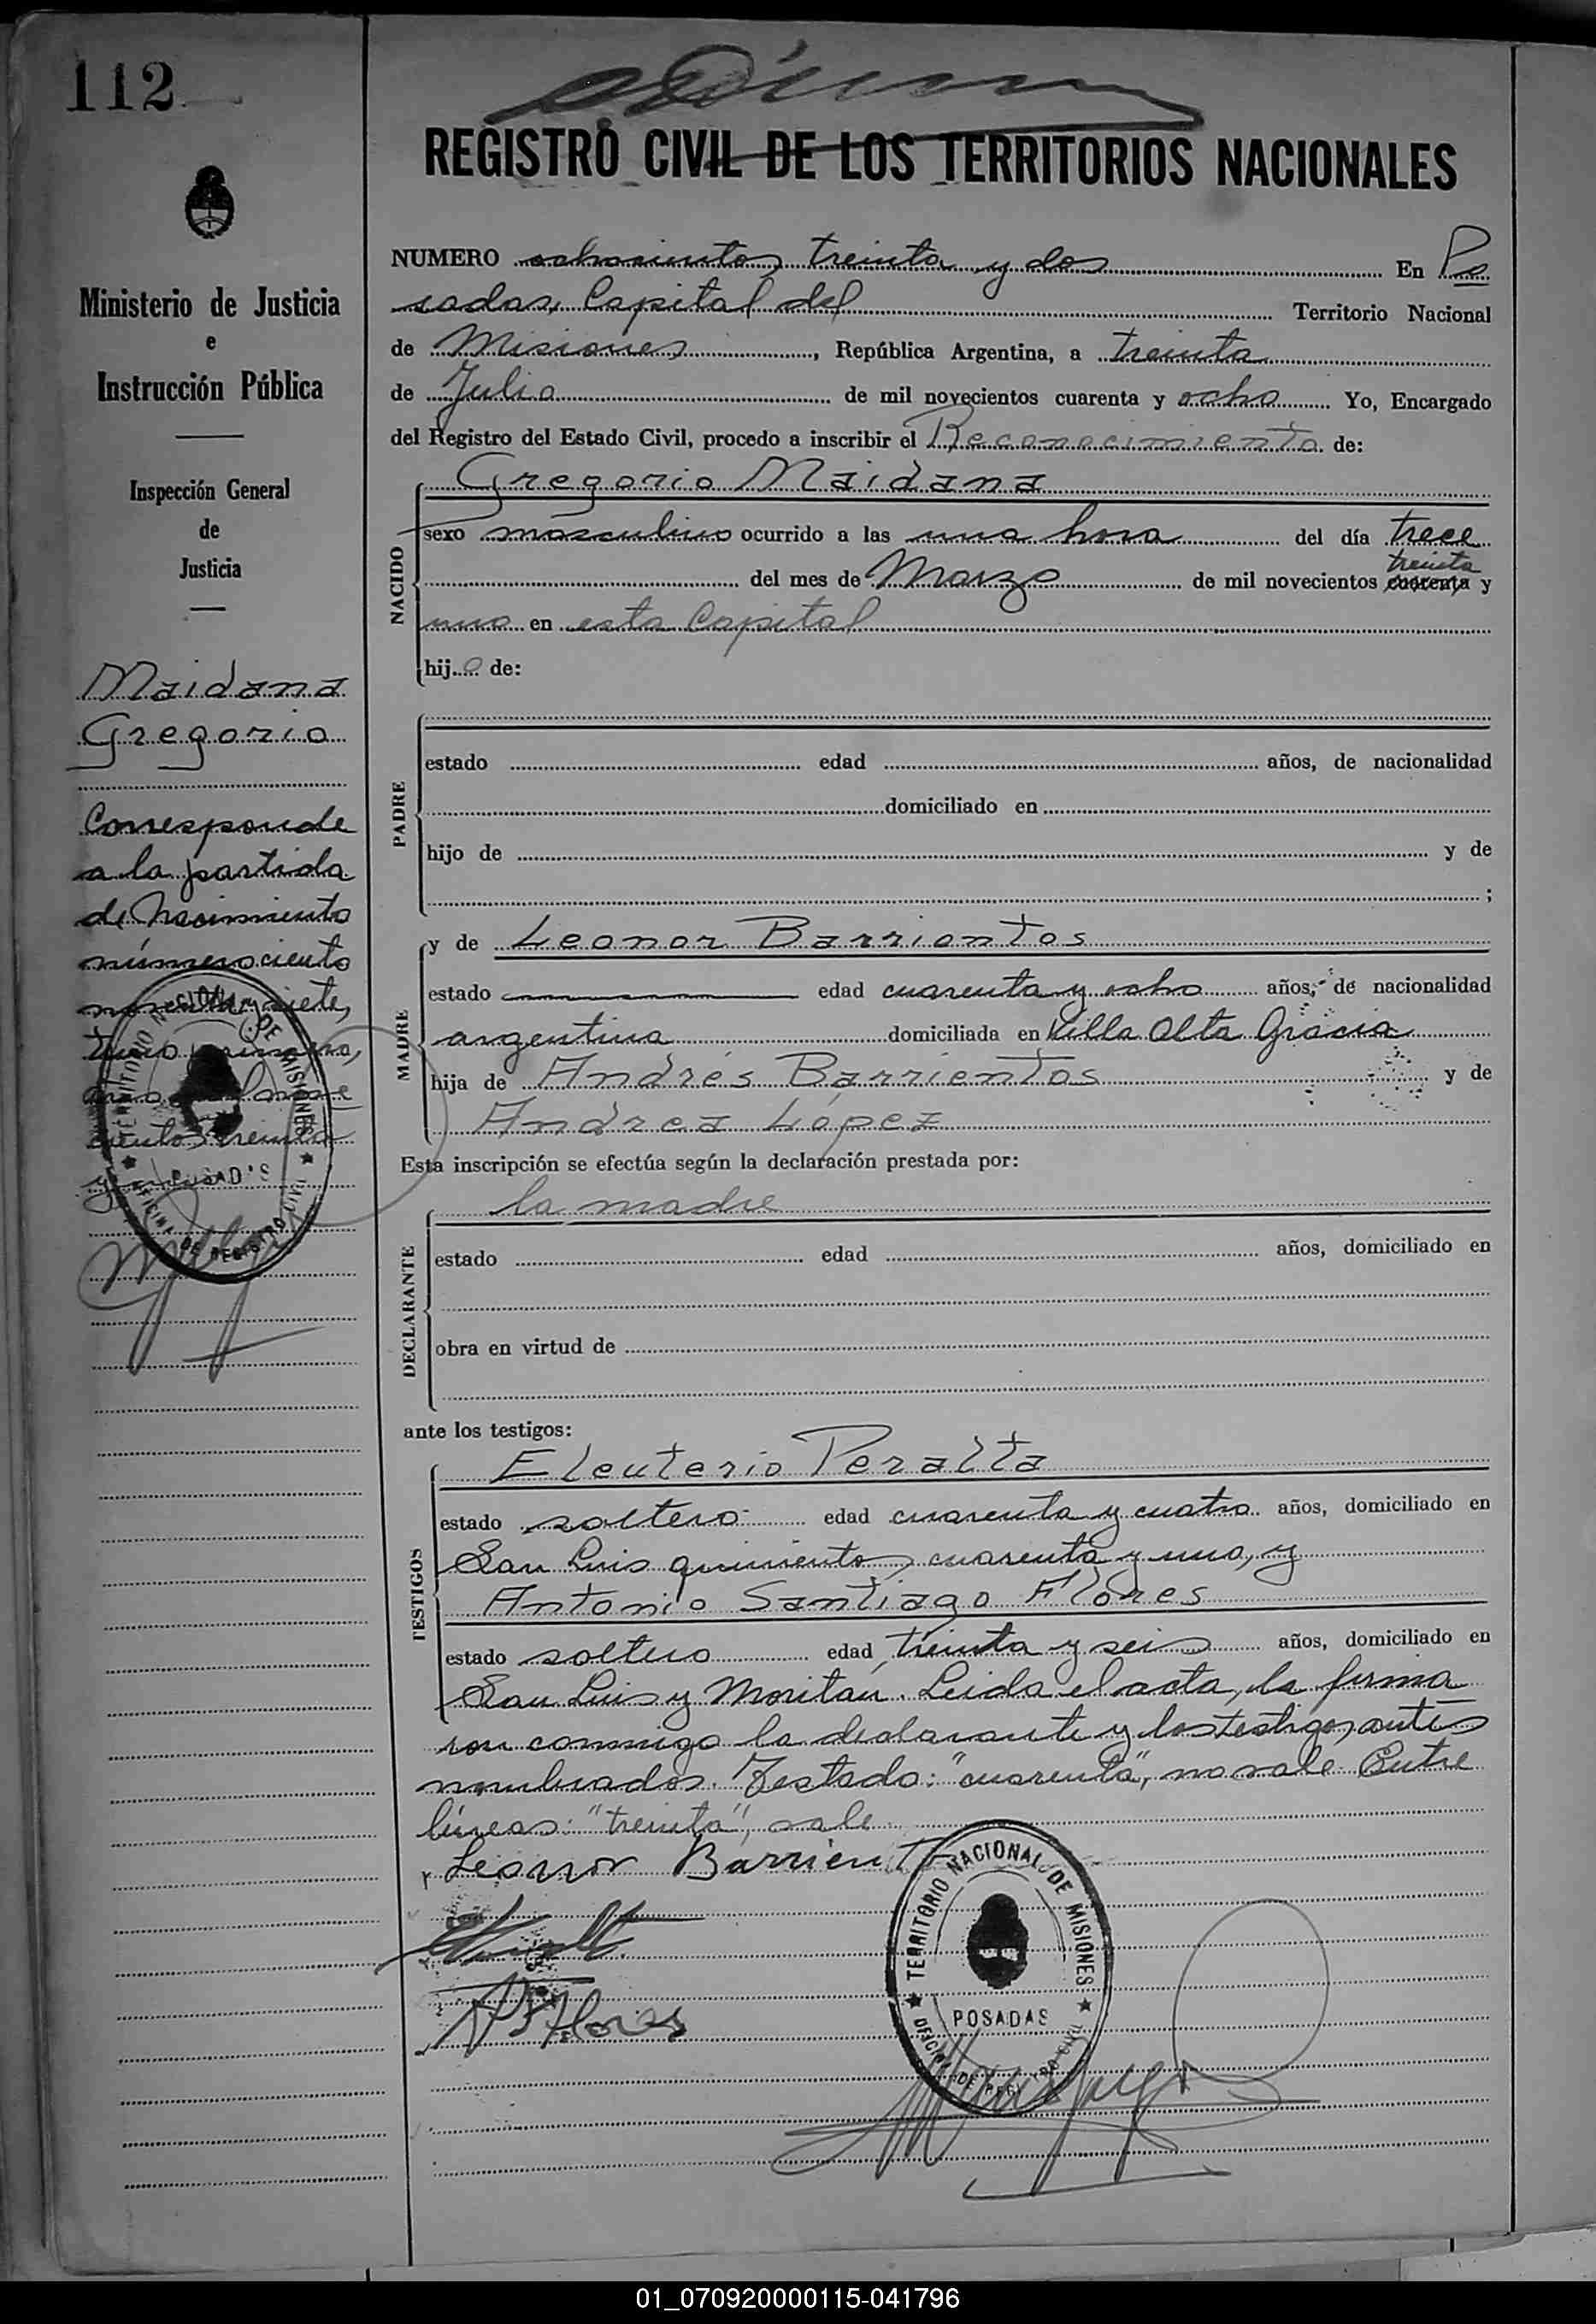 112
REGISTRO CIVIL DE LOS TERRITORIOS NACIONALES
Ministerio de Justicia
e
Instrucción Pública
Inspección General
de
Justicia
Maidana
Gregorio
Corresponde
a la partida
de Nacimiento
número ciento
y siete,
NUMERO ochocientos treinta y dos En Po
sadas, Capital del Territorio Nacional
de Misiones, República Argentina, a treinta
de Julio de mil novecientos cuarenta y ocho Yo, Encargado
del Registro del Estado Civil, procedo a inscribir el Reconocimiento de:
NACIDO
Gregorio Maidana
sexo masculino ocurrido a las una hora del día trece
treinta
del mes de Marzo de mil novecientos cuarenta y
uno en esta Capital
hijo de:
PADRE
estado edad años, de nacionalidad
domiciliado en
hijo de y de
;
MADRE
y de Leonor Barrientos
estado edad cuarenta y ocho años, de nacionalidad
argentina domiciliada en Villa Alta Gracia
hija de Andrés Barrientos y de
Andrea López
Esta inscripción se efectúa según la declaración prestada por:
DECLARANTE
la madre
estado edad años, domiciliado en
obra en virtud de
ante los testigos:
TESTIGOS
Eleuterio Peralta
estado soltero edad cuarenta y cuatro años, domiciliado en
San Luis quinientos cuarenta y uno, y
Antonio Santiago Flores
estado soltero edad treinta y seis años, domiciliado en
San Luis y Moritán. Leida el acta, la firma
ron conmigo la declarante y los testigos antes
nombrados. Testado: "cuarenta", no vale. Entre
líneas: "treinta", vale.
Leonor Barrient
A S Flores
TERRITORIO NACIONAL DE MISIONES
POSADAS
OFICINA DE REGISTRO CIVIL
01_070920000115-041796